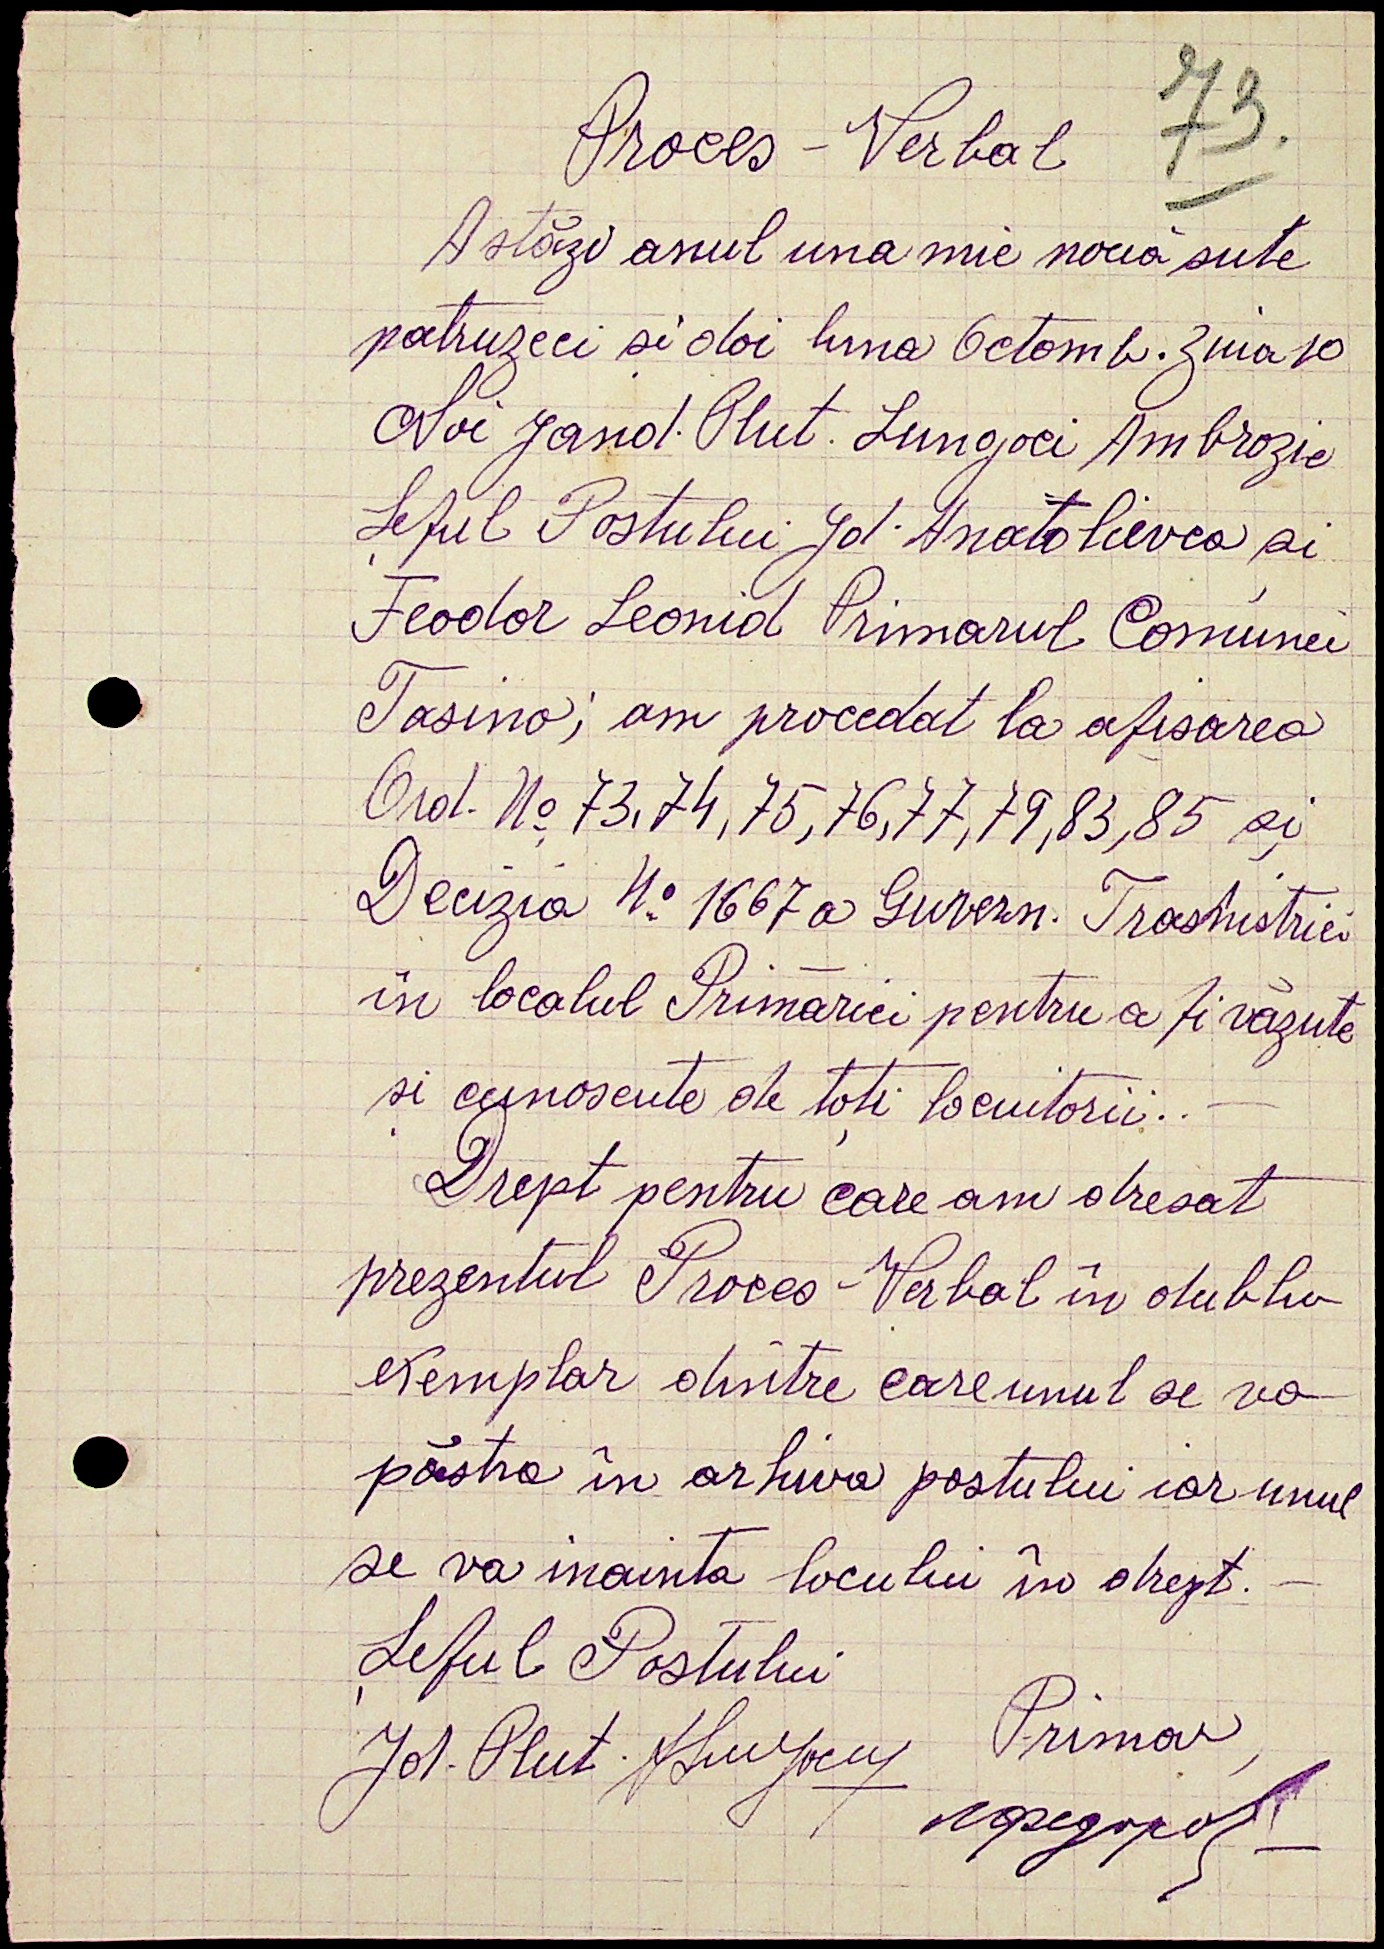 73.
Proces-Verbal
Astăzi anul una mie nouă sute
patruzeci și doi luna Octomb. ziua 10
Noi Jand. Plut. Lungoci Ambrozie
Șeful Postului Jd. Anatolievca și
Feodor Leonid Primarul Comunei
Tasino; am procedat la afisarea
Ord. No 73, 74, 75, 76, 77, 79, 83, 85 și
Decizia No 1667 a Guvern. Trasnistriei
în localul Primăriei pentru a fi văzute
și cunoscute de toți locuitorii.. —
Drept pentru care am dresat
prezentul Proces-Verbal în dublu
exemplar dintre care unul se va
păstra în arhiva postului iar unul
se va inainta locului în drept. —
Șeful Postului
Jd. Plut. Primar,